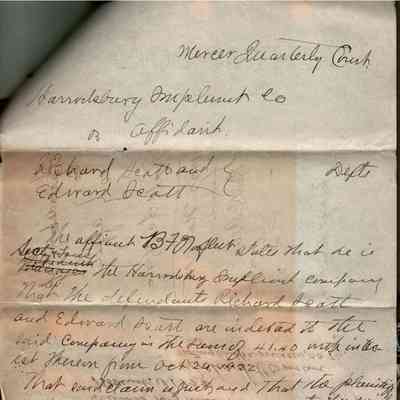 Mercer Quarterly Court
Harrodsburg Implement Co
vs Affidavit
Richard Scott and
Edward Scott
Defts
The affiant B F states that he is
the Harrodsburg Implement company
That the defendants Richard Scott
and Edward Scott are indebted to the
said Company in the sum of 41.40 with inter
est therein from Oct 24 1922
That said claim is just and that the plaintiff